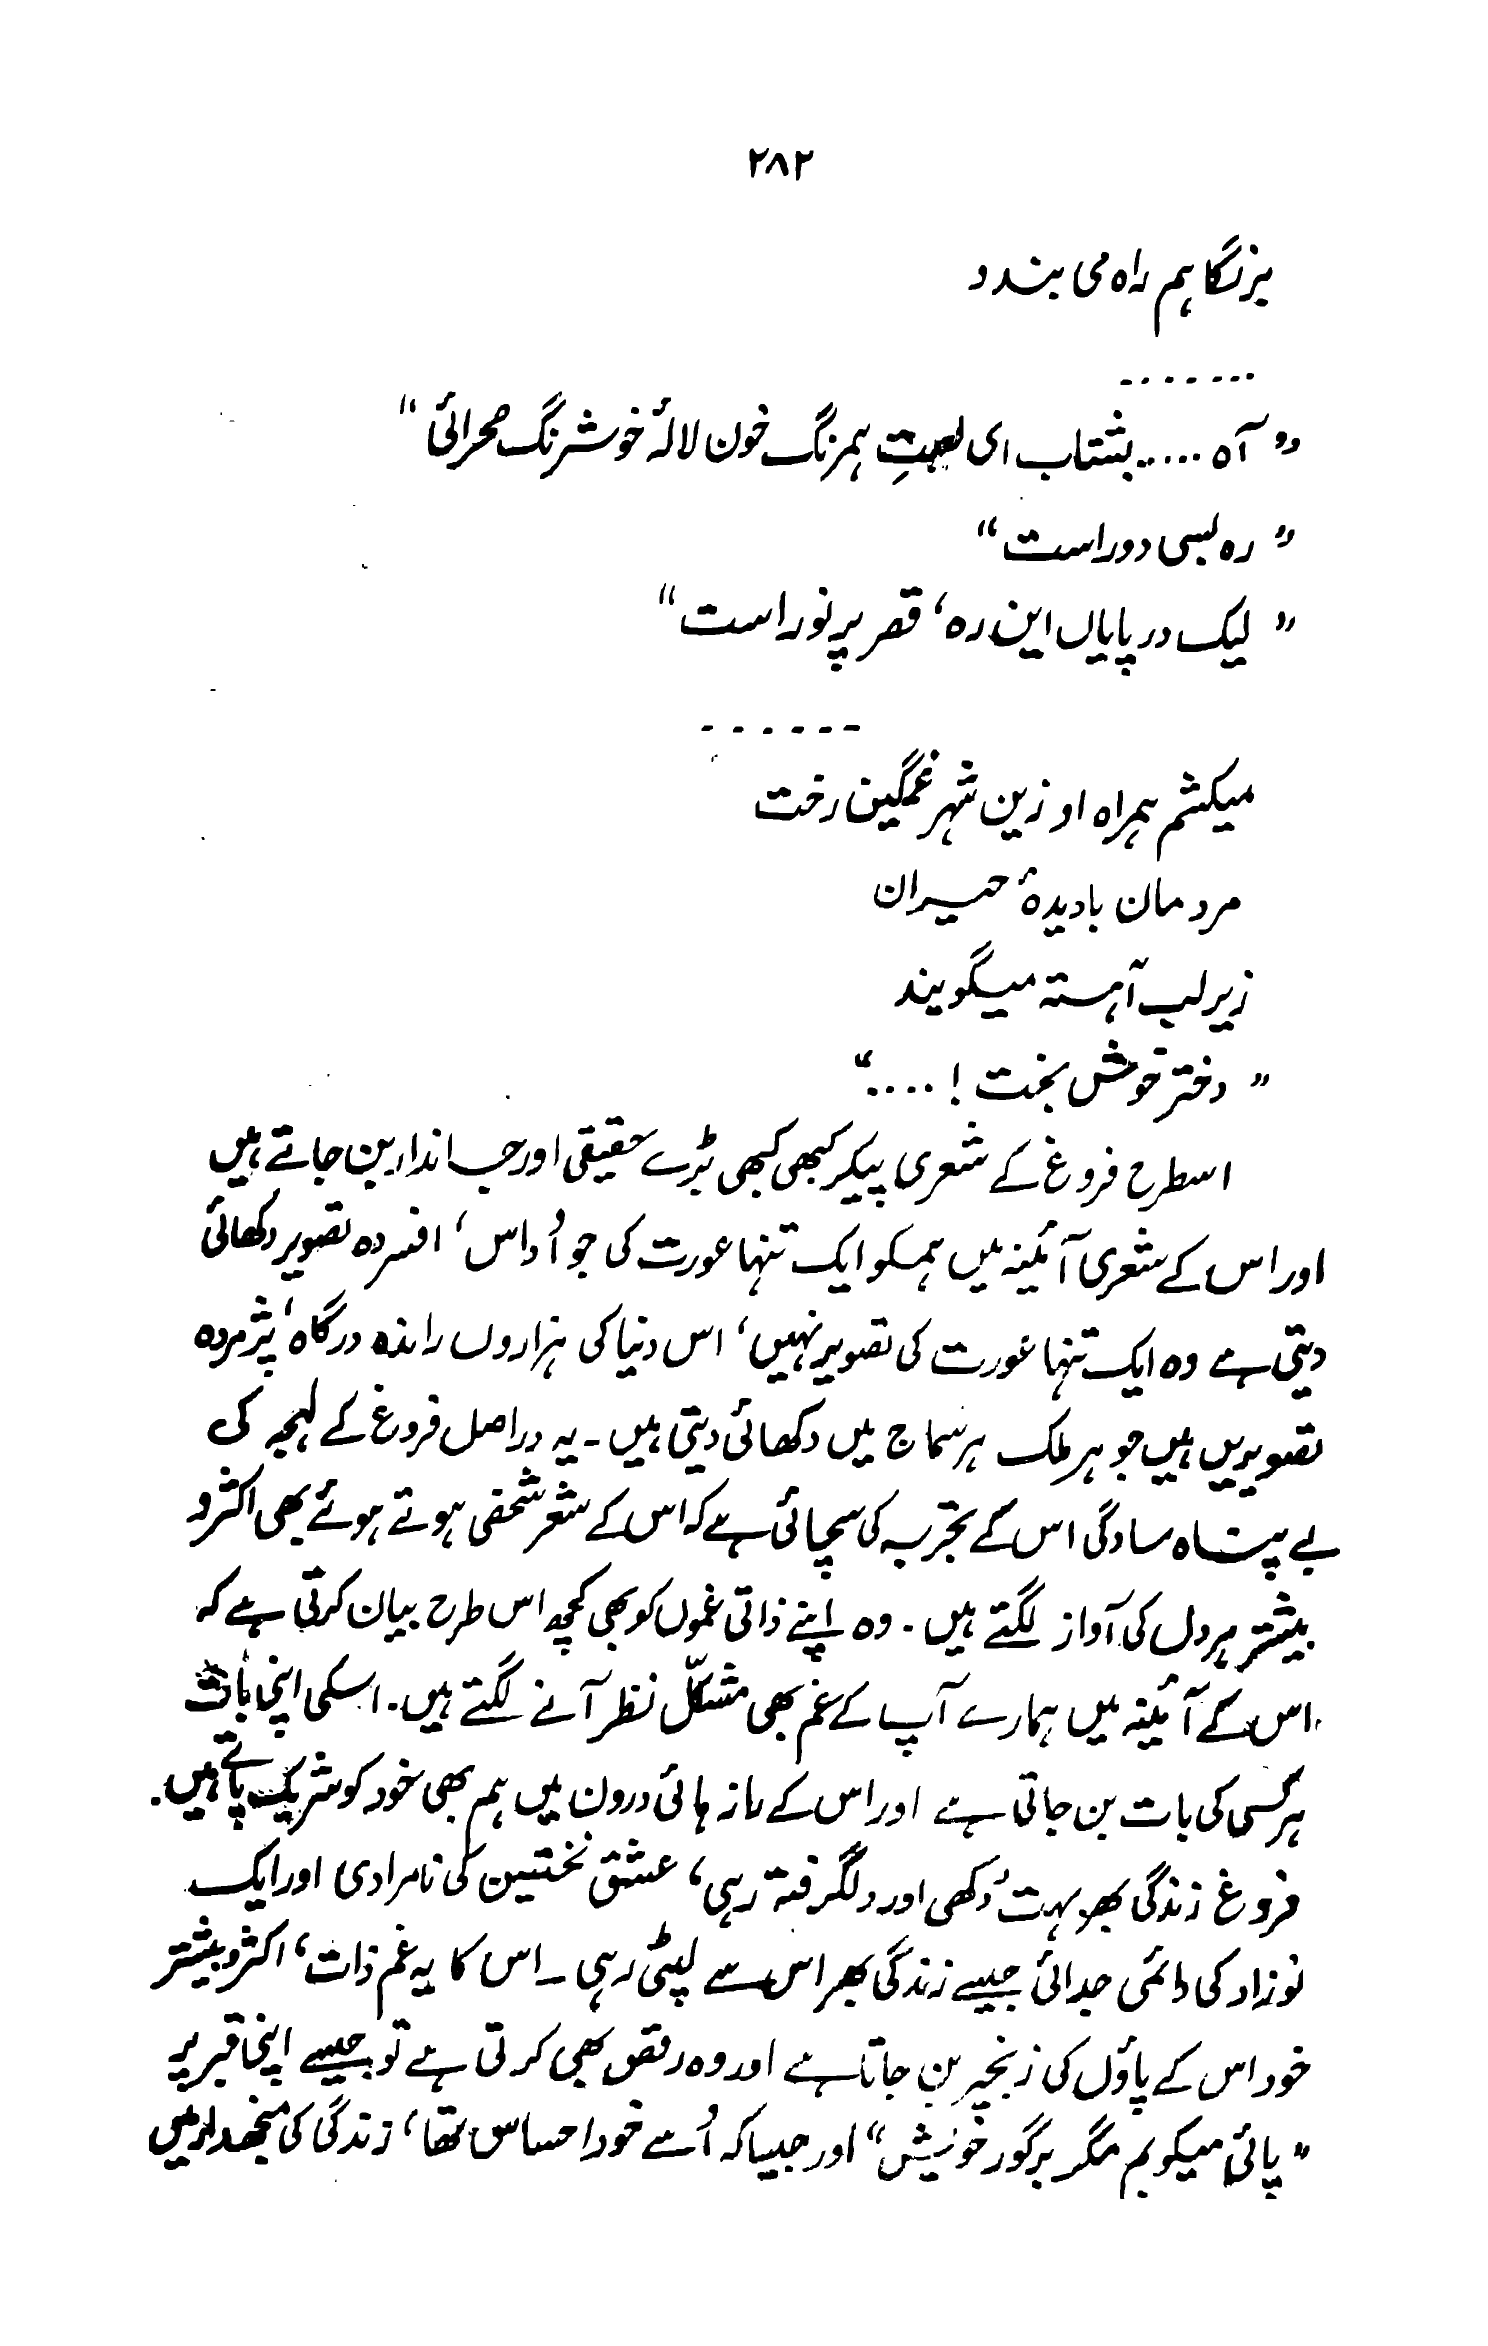 ۲۸۲
بر نگاہم راہ می بندد
.......
” آہ ..... بشتاب ای لعبتِ ہمرنگ خون لالۂ خوشرنگ صحرائی “
” رہ بسی دور است “
” لیک در پایاں این رہ، قصر پر نور است “
------
میکشم ہمراہ او زین شہر غمگین رخت
مردمان با دیدۂ حیران
زیر لب آہستہ میگویند
” دختر خوش بخت ! .... “
اسطرح فروغ کے شعری پیکر کبھی کبھی بڑے حقیقی اور جاندار بن جاتے ہیں
اور اس کے شعری آئینہ میں ہمکو ایک تنہا عورت کی جو اُداس، افسردہ تصویر دکھائی
دیتی ہے وہ ایک تنہا عورت کی تصویر نہیں، اس دنیا کی ہزاروں راندہ درگاہ، پژمردہ
تصویریں ہیں جو ہر ملک ہر سماج میں دکھائی دیتی ہیں۔ یہ دراصل فروغ کے لہجہ کی
بے پناہ سادگی اس کے تجربہ کی سچائی ہے کہ اس کے شعر شخصی ہوتے ہوئے بھی اکثر و
بیشتر ہر دل کی آواز لگتے ہیں۔ وہ اپنے ذاتی غموں کو بھی کچھ اس طرح بیان کرتی ہے کہ
اس کے آئینہ میں ہمارے آپ کے غم بھی متشکّل نظر آنے لگتے ہیں۔ اسکی اپنی بات
ہر کسی کی بات بن جاتی ہے اور اس کے راز ہائی درون میں ہم بھی خود کو شریک پاتے ہیں۔
فروغ زندگی بھر بہت دُکھی اور دلگرفتہ رہی، عشق نخستین کی نامرادی اور ایک
نوزاد کی دائمی جدائی جیسے زندگی بھر اس سے لپٹی رہی۔ اس کا یہ غم ذات، اکثر و بیشتر
خود اس کے پاؤں کی زنجیر بن جاتا ہے اور وہ رقص بھی کرتی ہے تو جیسے اپنی قبر پر
” پائی میکوبم مگر بر گور خویش “ اور جیسا کہ اُسے خود احساس تھا، زندگی کی منجھدار میں